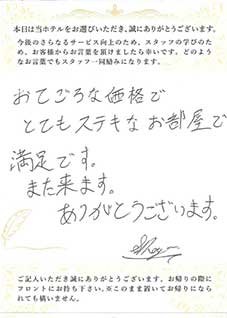 本日は当ホテルをお選びいただき、誠にありがとうございます。
今後のさらなるサービス向上のため、スタッフの学びのた
め、お客様からお言葉を頂けましたら幸いです。どのよう
なお言葉でもスタッフ一同励みになります。
おてごろな価格で
とてもステキなお部屋で
満足です。
また来ます。
ありがとうございます。
ご記入いただき誠にありがとうございます。お帰りの際に
フロントにお持ち下さい。※このまま置いてお帰りになら
れても構いません。